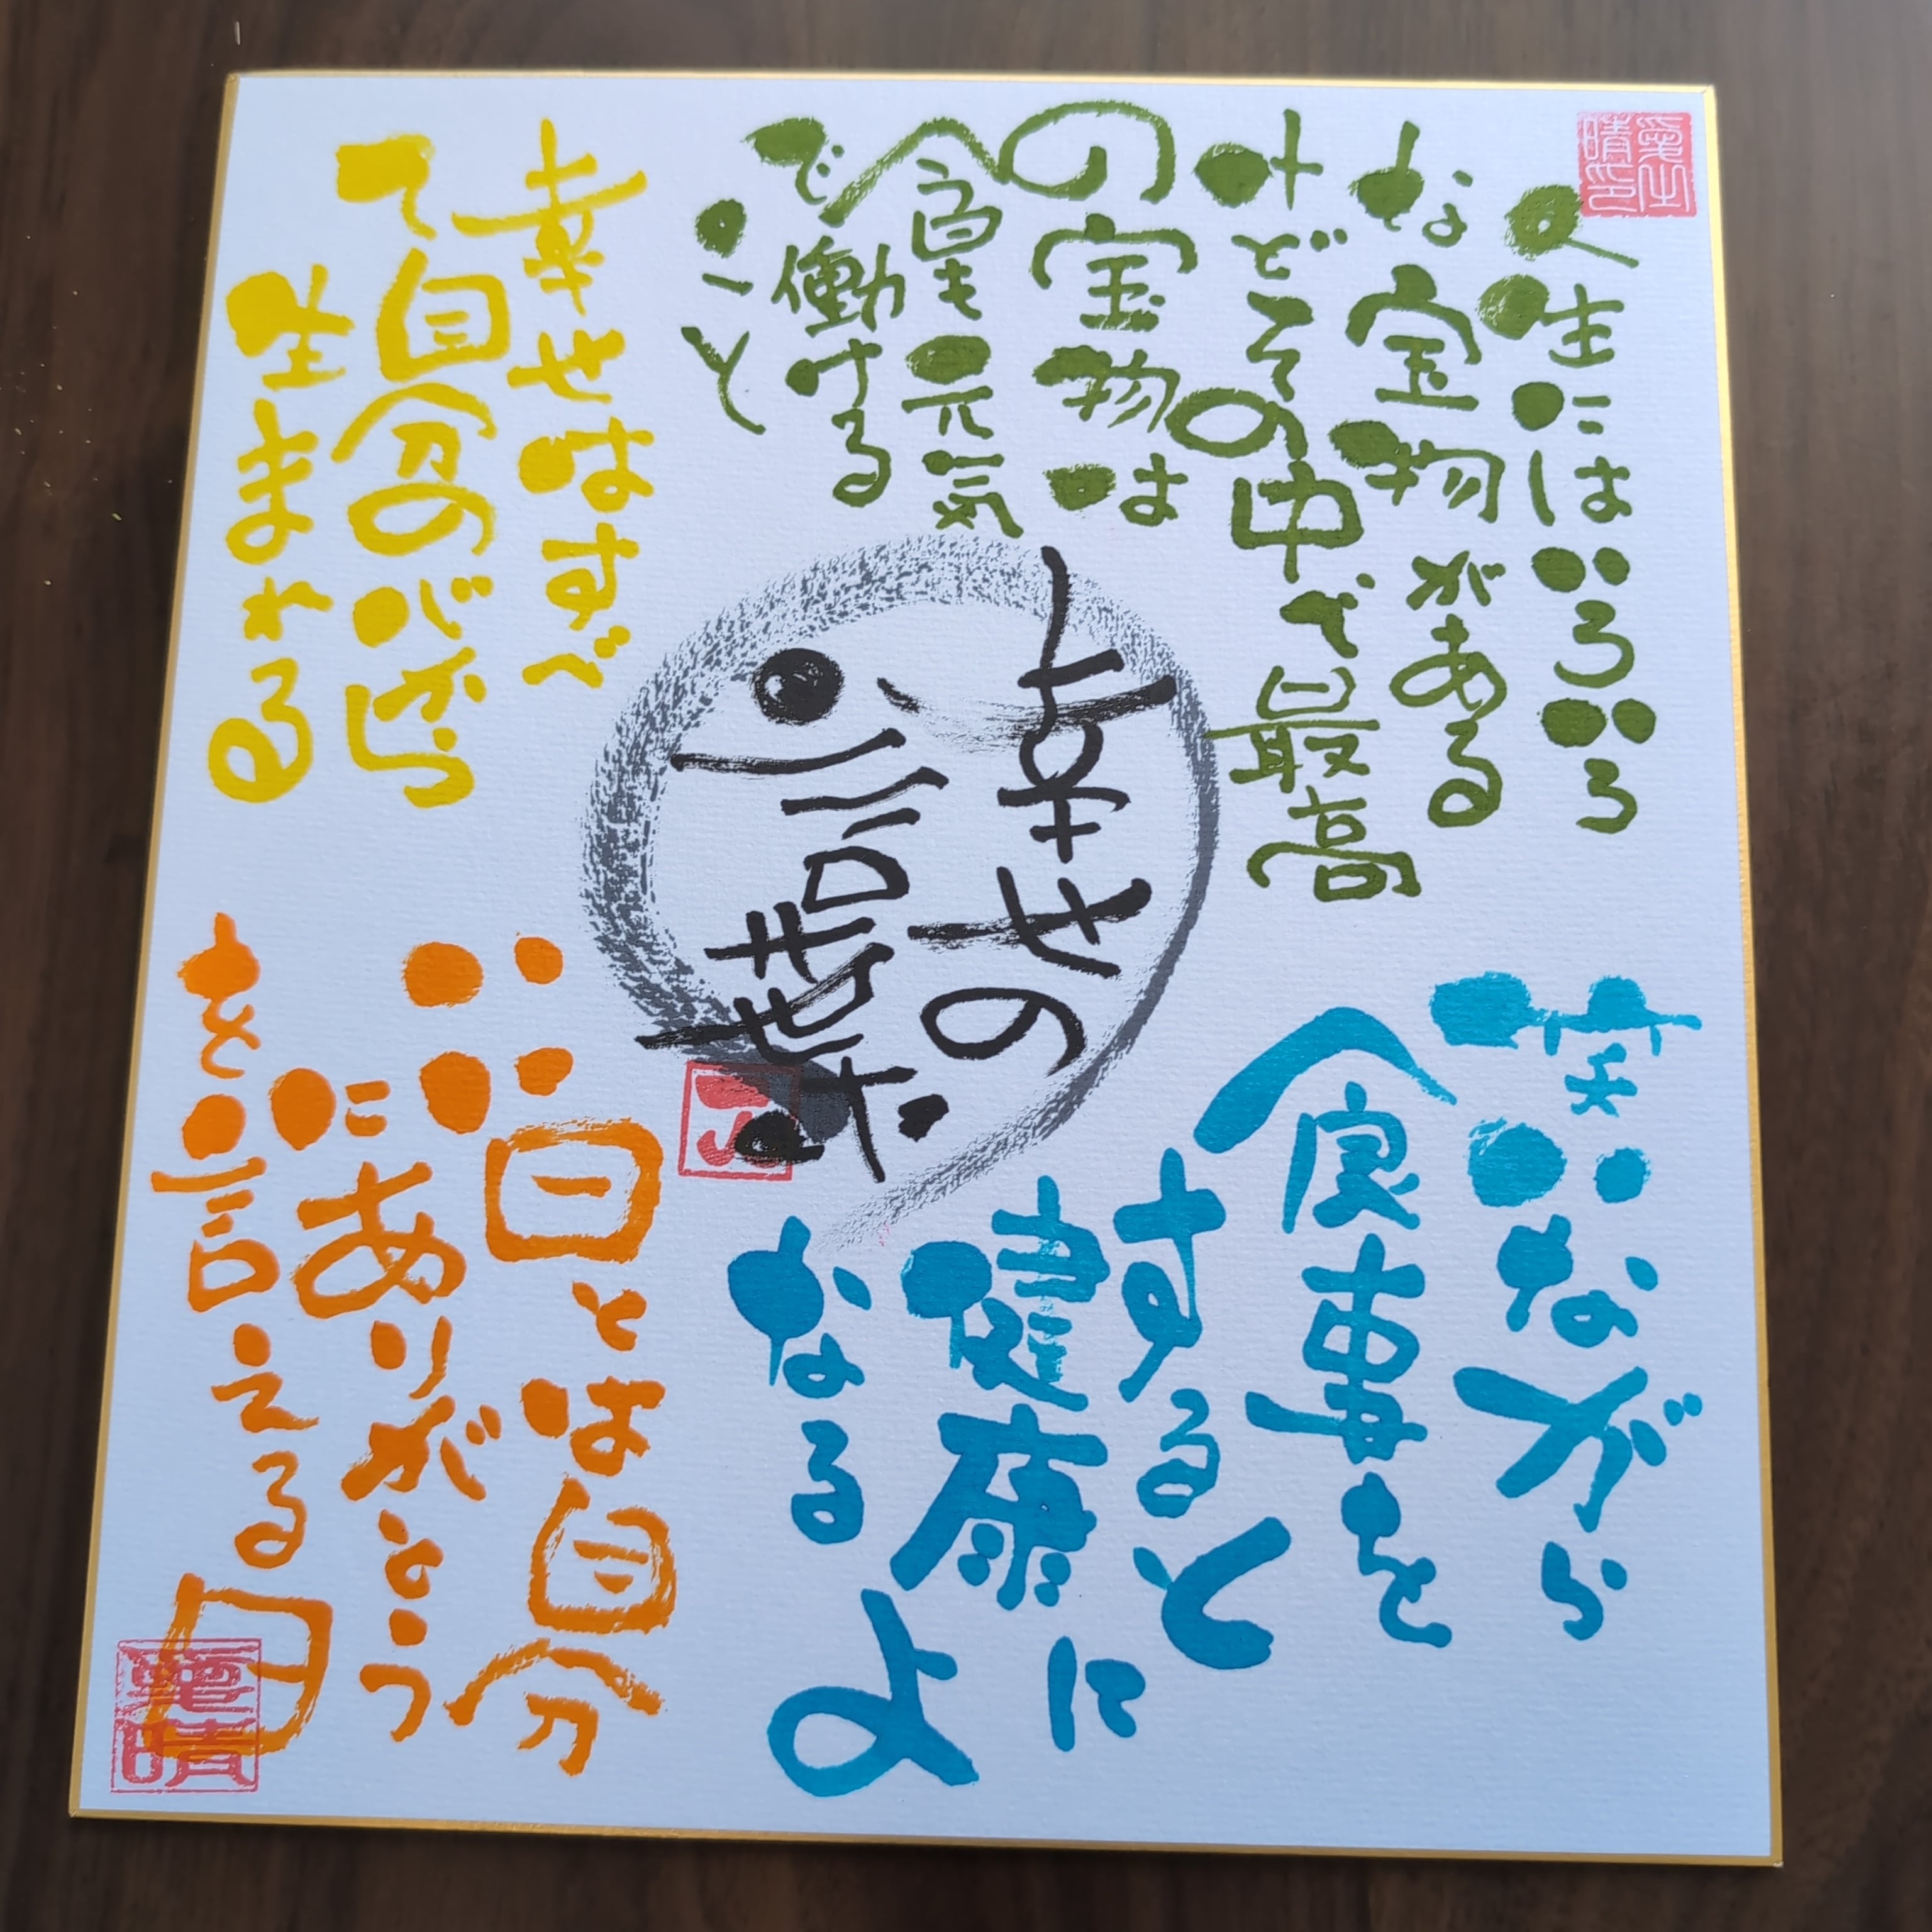 人生にはいろいろ
な宝物がある
けどその中で最高
の宝物は
今日も元気
で働ける
こと
幸せの
言葉
幸せはすべ
て自分の心から
生まれる
笑いながら
食事を
すると
健康に
なるよ
いい日とは自分
にありがとう
を言える日